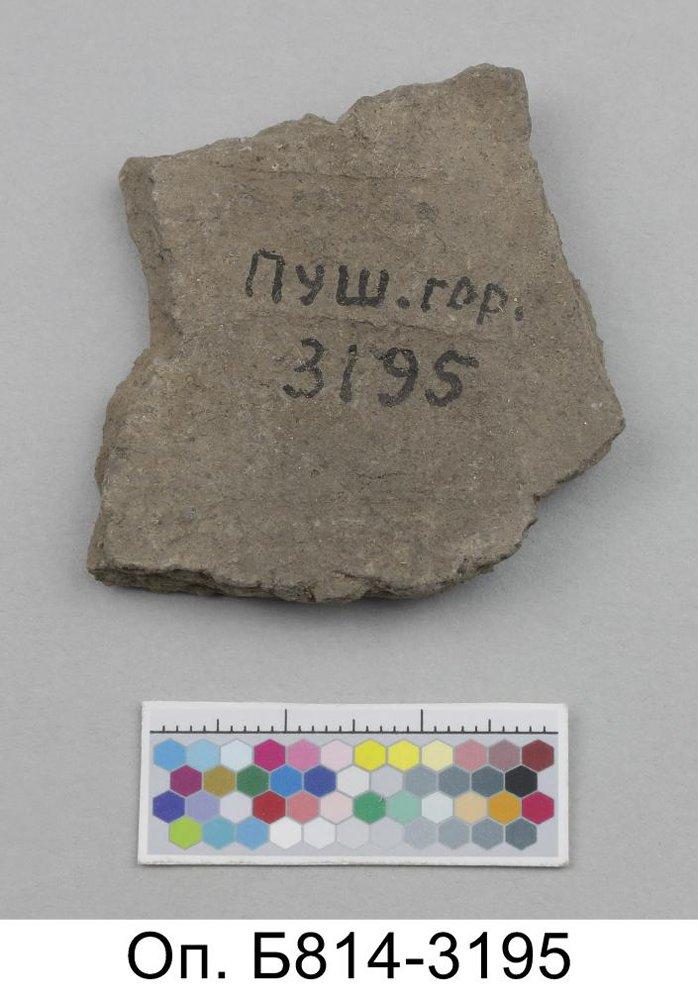 ПУШ.гор.
3195
Оп. Б814-3195